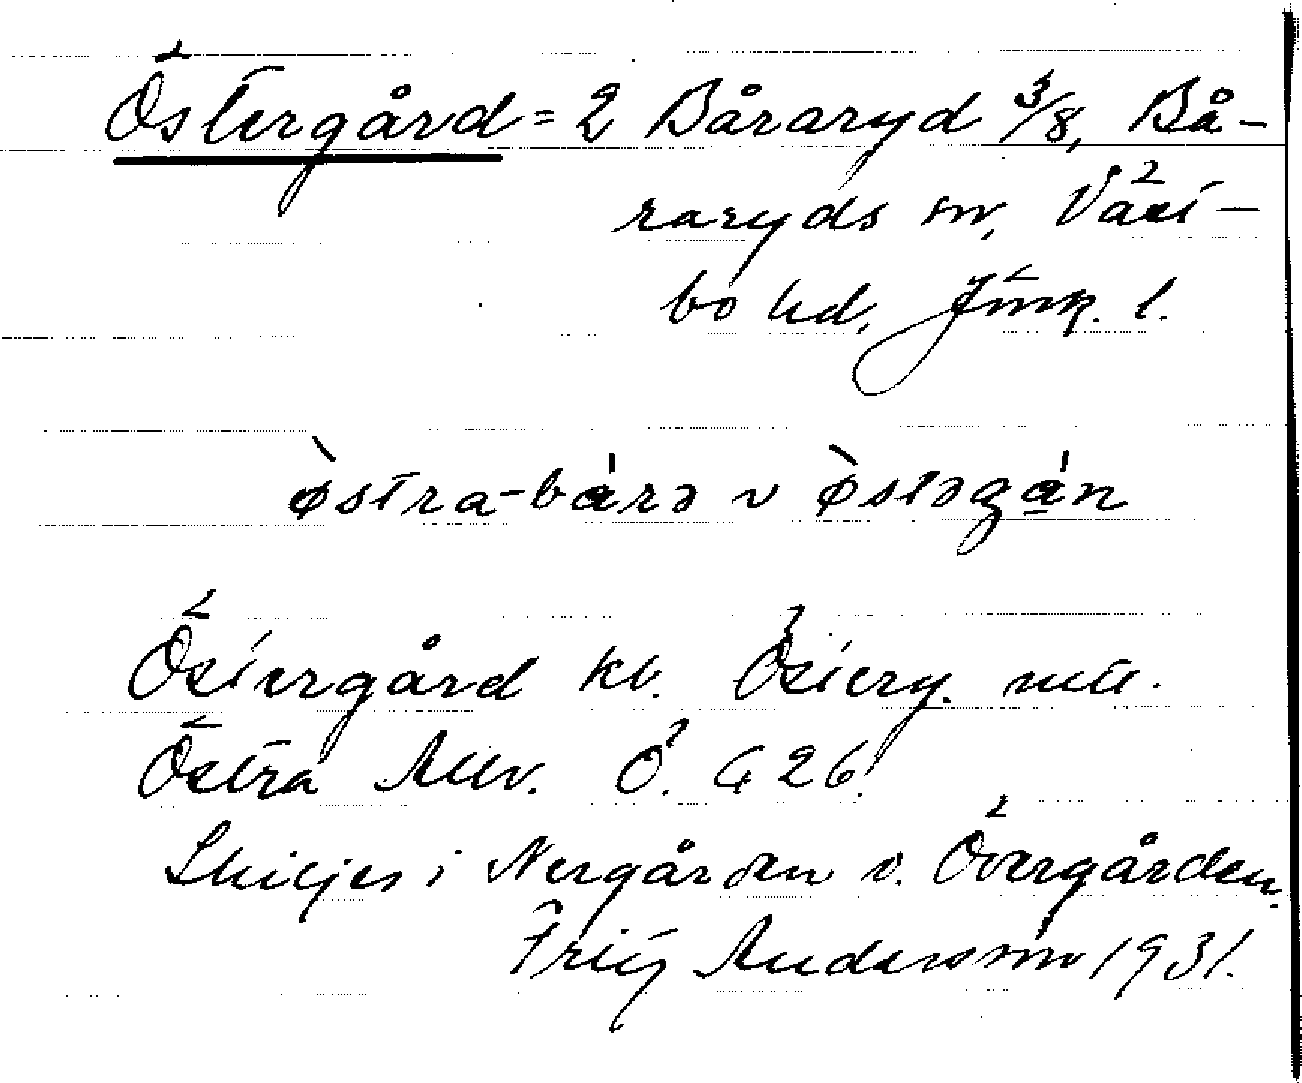 Östergård = 2 Båraryd 3/8, Bå-
raryds sn, Väst-
bo hd, Jönk. l.
östra-bárə v östəgán
Östergård kb. Österg. mtl.
Östra Allm. Ö. G 26.
Skiljes i Nergården o. Övergården.
Fritz Andersson 1931.